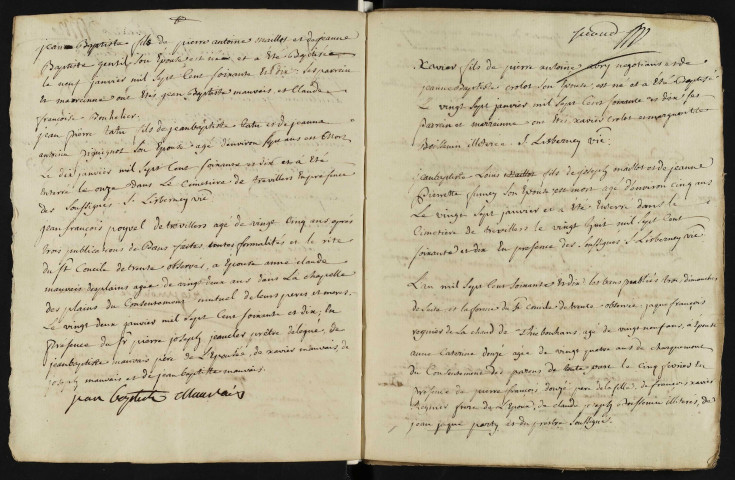 jean Baptiste fils du pierre antoine maillot et de jeanne
Baptiste gentil son Epouse est né et a Eté Baptisé
le neuf janvier mil Sept Cent soixante et dix. Ses parrein
et marrenne ont Etés jean Baptiste mauvais et Claude
françoise Bonhelier.
jean pierre fils de jean baptiste et de jeanne
antoine son Epouse agé d'environ sept ans est mort
Le dix janvier mil Sept Cent soixante et dix et a Eté
Enterré le onze Dans Le Cimetiere de trevillers En presence
des Soussignés J. Lisberney vic
jean françois poupel de trevillers agé de vingt Cinq ans aprés
trois publications de Bans faites toutes formalités et le rite
du St Concile de trente observés, a Epousé anne claude
mauvais desplains agée de vingt deux ans dans La chapelle
des plains du Consentement mutuel de leurs peres et meres.
Le vingt deux janvier mil Sept Cent soixante et dix; En
presence du Sr pierre joseph prêtre delegué, de
jean baptiste mauvais pere de l'Epousée, de xavier mauvais de
joseph mauvais et de jean baptiste mauvais.
jean baptiste Mauvais
Xavier fils de pierre antoine negotians et de
jeanne baptiste crolot son Epouse est né et a Eté Baptisé
Le vingt Sept janvier mil Sept Cent soixante et dix; ses
Parrein et marrenne ont Eté xavier crolot et marguerite
J. Lisberney vic
jean baptiste Louis fils de joseph maillot et de jeanne
Pierrette son Epouse est mort agé d'environ cinq ans
Le vingt Sept janvier et a Eté Enterré dans le
Cimetiere de trevillers le vingt huit mil Sept Cent
soixante et dix En presence des Soussignés J. Lisberney vic
L'an mil Sept Cent Soixante et dix les bans publiés trois dimanches
de suite et la forme du St Concile de trente observée jaque françois
regnier de la chaud de agé de vingt neuf ans, a Epousé
anne Caterine donzé agée de vingt quatre ans de
du Consentement des parens de toute part le cinq fevrier En
presence de pierre françois donzé pere de la fille, de françois xavier
Regnier frere de l'Epoux, de claude joseph illiteres, de
jean jaque party et du prêtre soussigné.